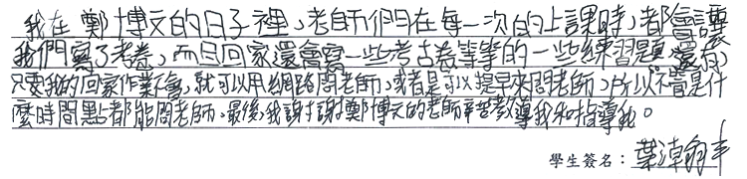 我在鄭博文的日子裡，老師們在每一次的上課時，都會讓
我們寫了考卷，而且回家還會寫一些考古卷等等的一些練習題，還有，
只要我的回家作業不會，就可以用網路問老師，或者是可以提早來問老師，所以不管是什
麼時間點都能問老師。最後，我謝謝鄭博文的老師辛苦教導我和指導我。
學生簽名：葉淖